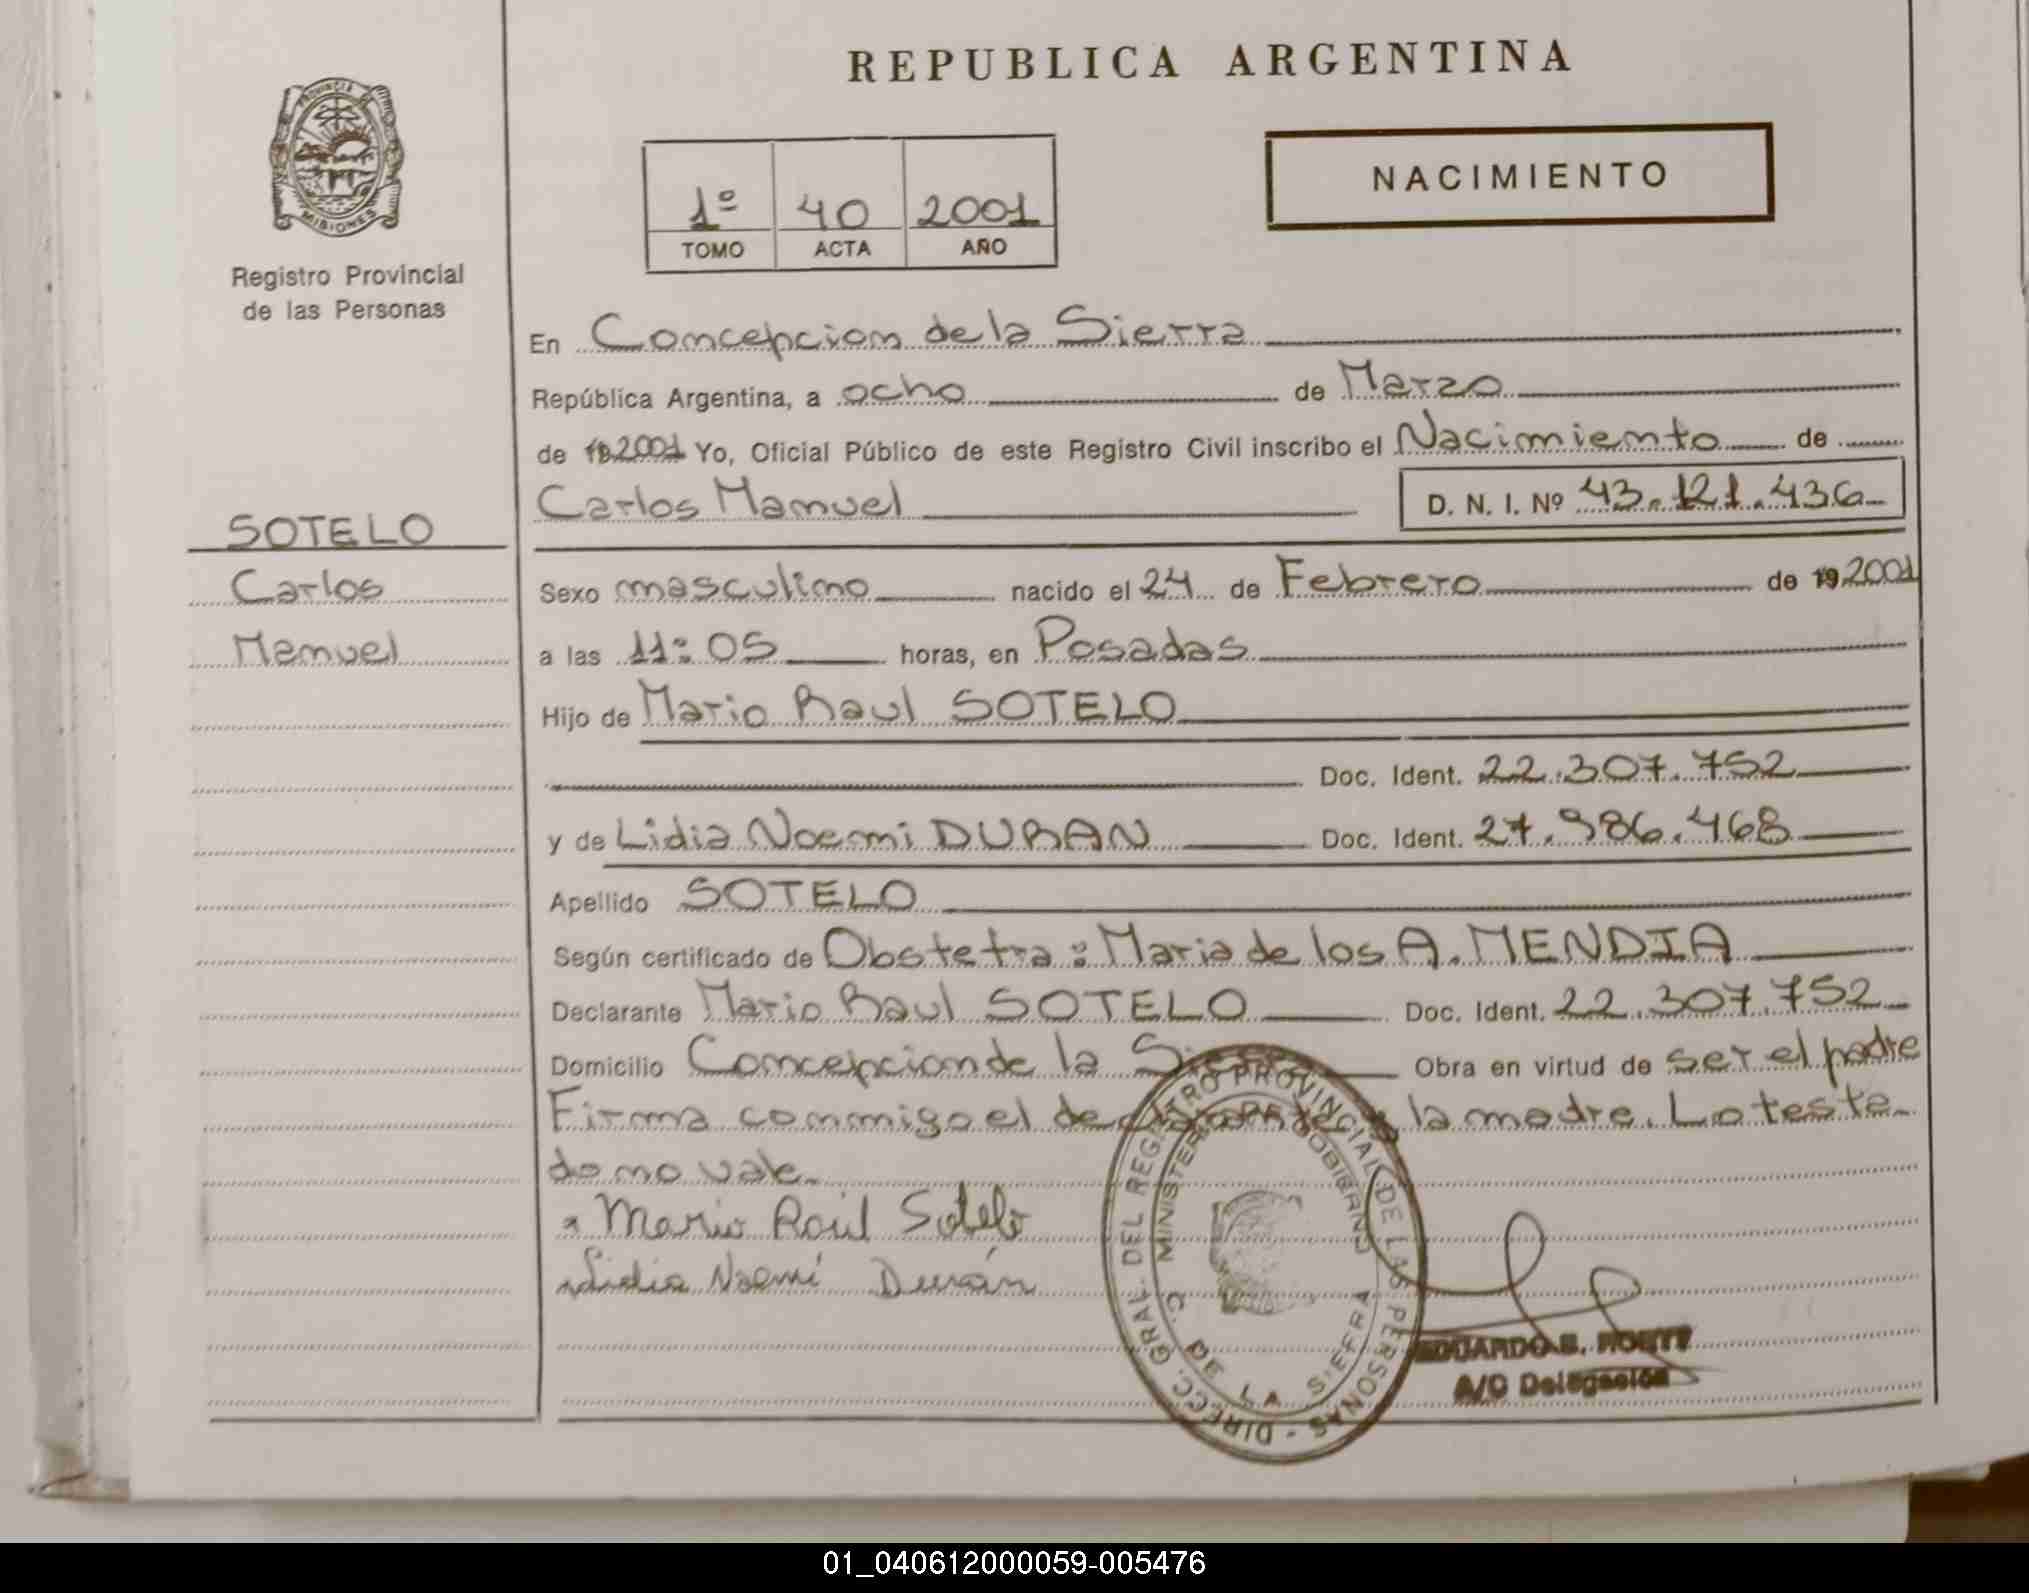 REPUBLICA ARGENTINA
PROVINCIA DE
MISIONES
Registro Provincial
de las Personas
1º 40 2001
TOMO ACTA AÑO
NACIMIENTO
En Concepcion de la Sierra
República Argentina, a ocho de Marzo
de 19 2001 Yo, Oficial Público de este Registro Civil inscribo el Nacimiento de
Carlos Manuel D. N. I. Nº 43.121.436
SOTELO
Carlos
Manuel
Sexo masculino nacido el 24 de Febrero de 19 2001
a las 11:05 horas, en Posadas
Hijo de Mario Raul SOTELO
Doc. Ident. 22.307.752
y de Lidia Noemi DURAN Doc. Ident. 27.986.468
Apellido SOTELO
Según certificado de Obstetra: Maria de los A. MENDIA
Declarante Mario Raul SOTELO Doc. Ident. 22.307.752
Domicilio Concepcion de la Sierra Obra en virtud de ser el padre
Firma conmigo el declarante y la madre. Lo testa-
do no vale.
Mario Raúl Sotelo
Lidia Noemí Durán
DIRECC. GRAL. DEL REGISTRO PROVINCIAL DE LAS PERSONAS
MINISTERIO DE GOBIERNO
C. DE LA SIERRA
EDUARDO
A/C Delegación
01_040612000059-005476